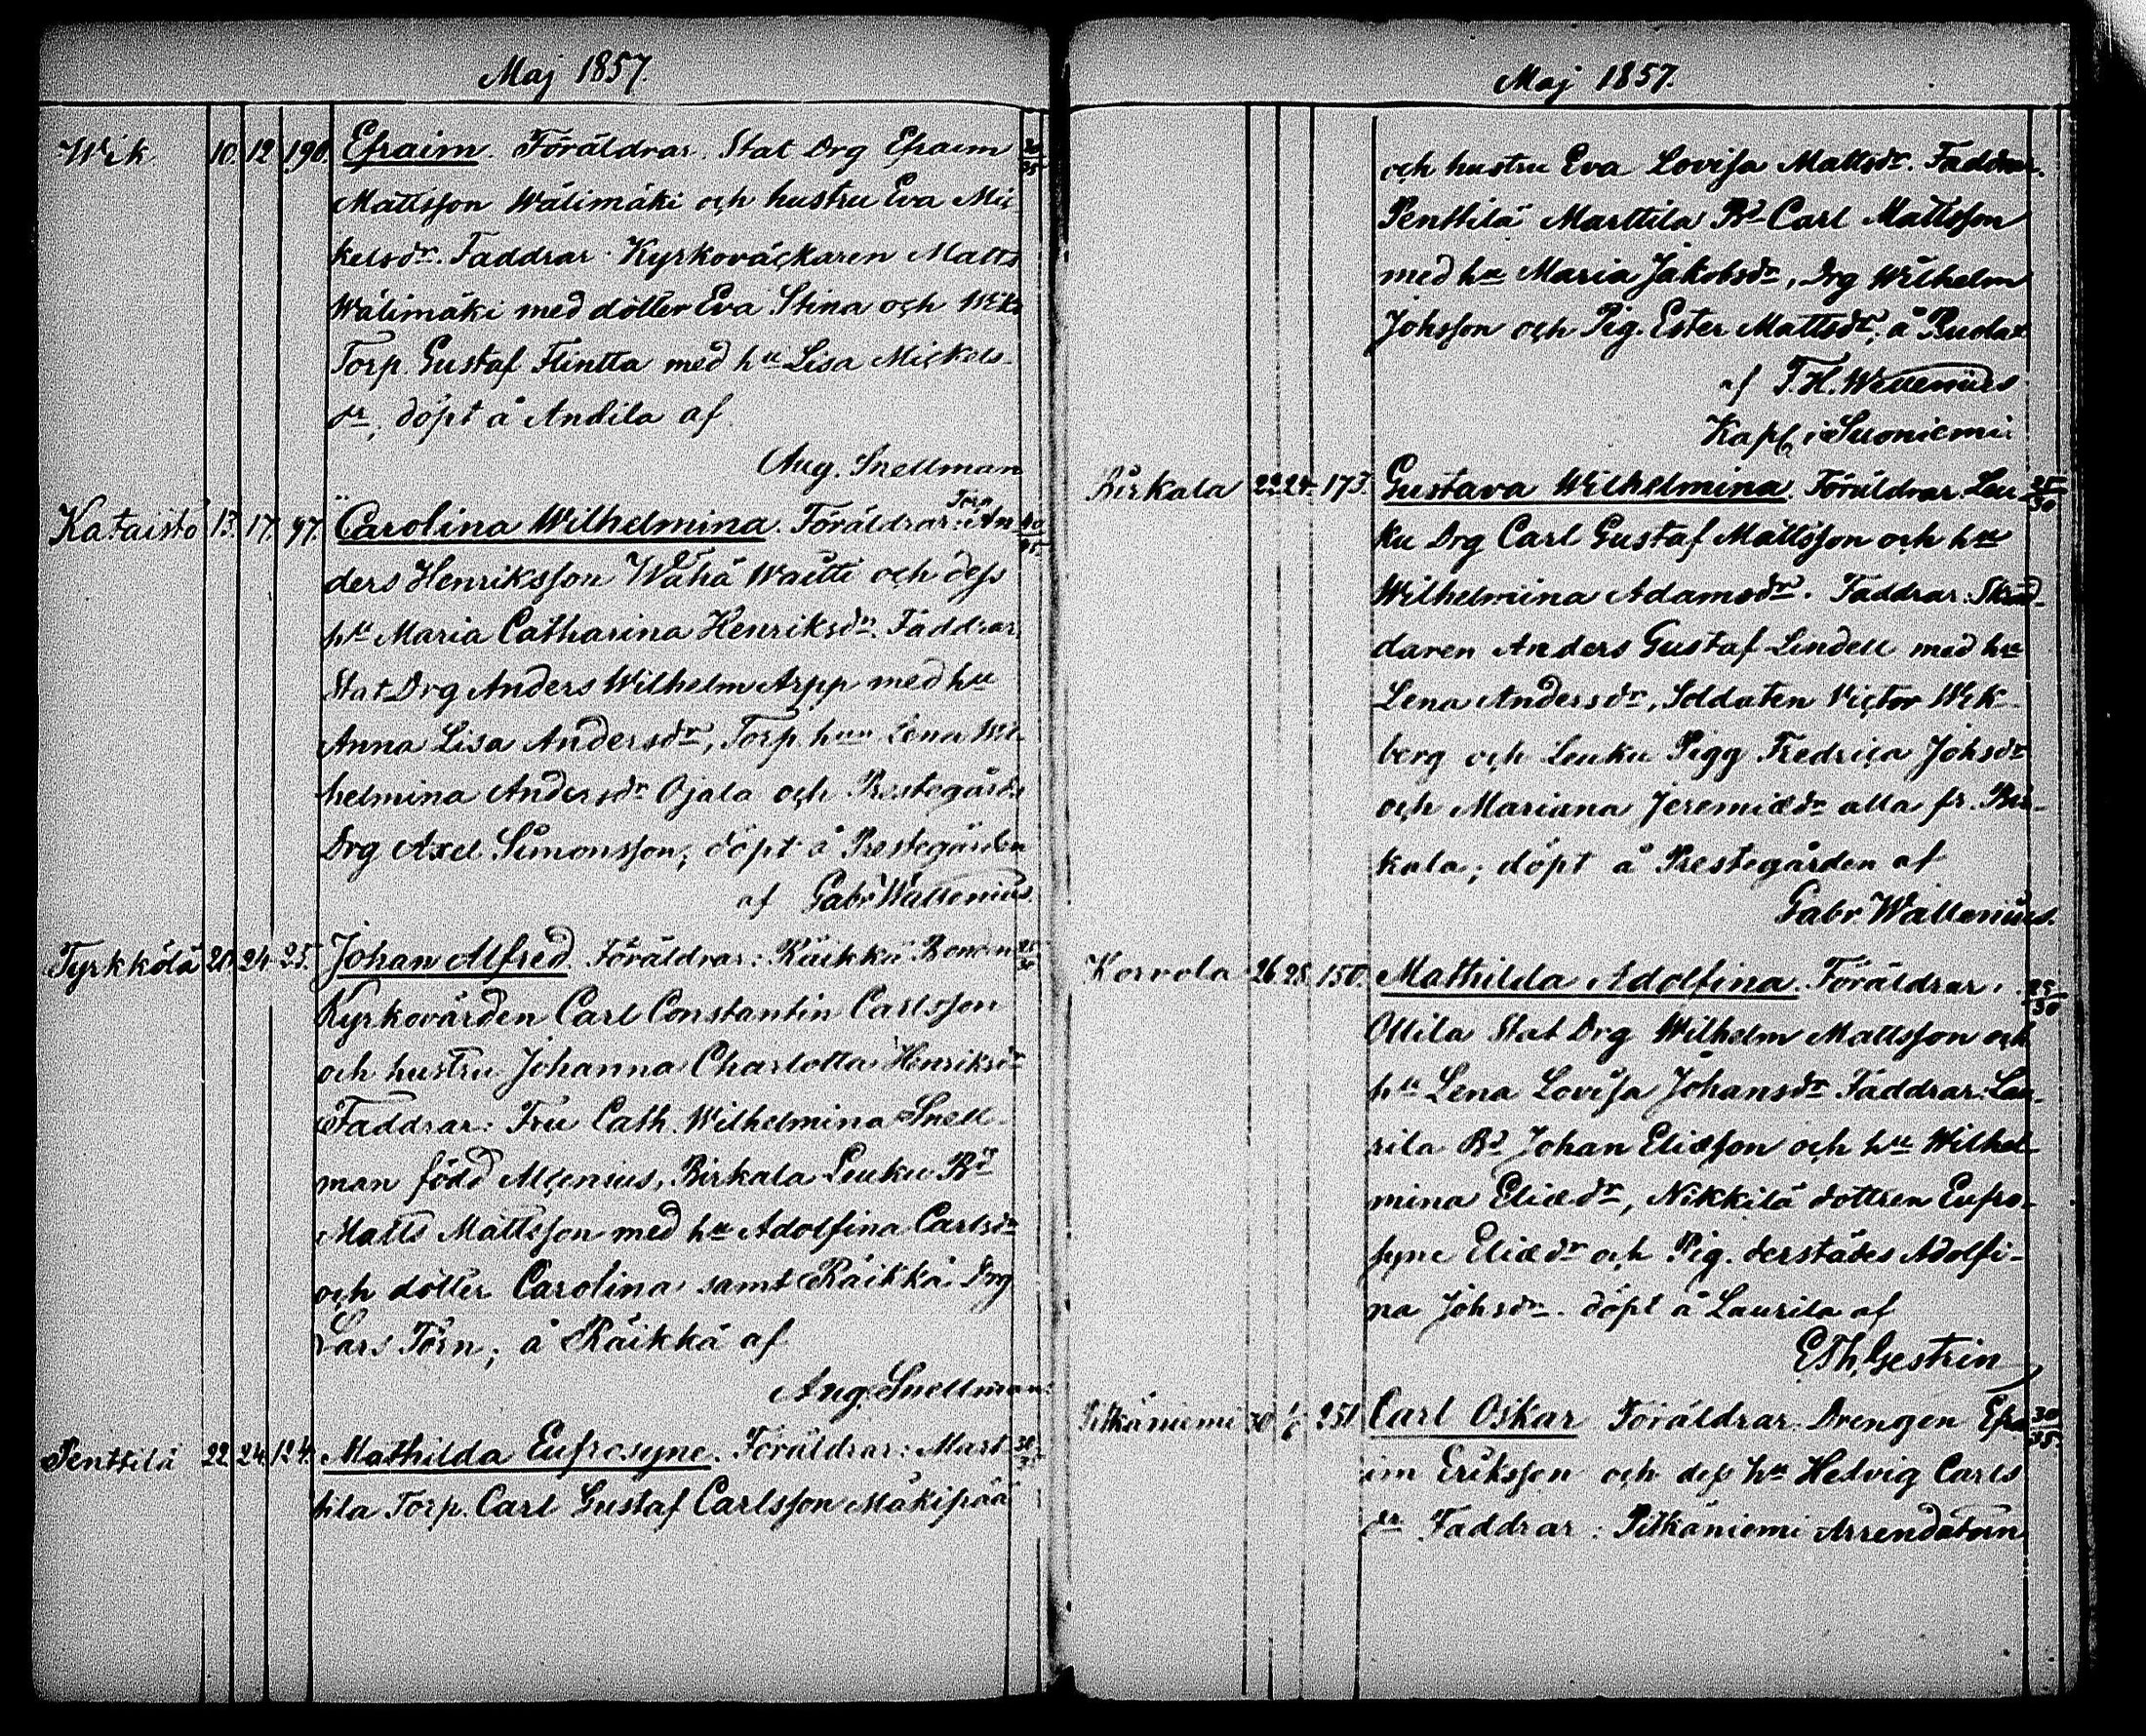 Maj 1857.
Wik 10. 12 190. Efraim. Föräldrar. Stat Drg Efraim
Mattsson Wälimäki och hustru Eva Mic
kelsdr. Faddrar: Kyrkoväckaren Matts
Wälimäki med dotter Eva Stina och Wiks
Torp. Gustaf Flintta med hu Lisa Mickels-
dr, döpt å Andila af
Aug. Snellman
Kataisto 13. 17. 97. Carolina Wilhelmina. Föräldrar: Torp An 40/45
ders Henriksson Wähä Waitti och dess
hu Maria Catharina Henriksdr. Faddrar
Stat Drg Anders Wilhelm Arpp med hu
Anna Lisa Andersdr, Torp. hun Lena Wil
helmina Andersdr Ojala och Prestegårds
Drg Axel Simonsson, döpt å Prestegården
af Gabr Wallenius.
Tyrkkölä 20. 24. 25. Johan Alfred. Föräldrar: Räikkä Bonden 25/30
Kyrkovärden Carl Constantin Carlsson
och hustru Johanna Charlotta Henriksdr
Faddrar: Fru Cath. Wilhelmina Snell-
man född Alcenius, Birkala Leuku Bd
Matts Mattsson med hu Adolfina Carlsdr
och dotter Carolina samt Räikkä Drg
Lars Törn; å Räikkä af
Aug. Snellman.
Penttilä 22. 24. 124. Mathilda Eufrosyne. Föräldrar: Mart
tila Torp. Carl Gustaf Carlsson Mäkipää
Maj 1857.
och hustru Eva Lovisa Mattsdr. Faddrar.
Penttilä Marttila Bd Carl Mattsson
med hu Maria Jakobsdr, Drg Wilhelm
Johsson och Pig. Ester Mattsdr; å
af F. H. Wallenius
Kapl i Suoniemi
Birkala 22. 24. 173. Gustava Wilhelmina Föräldrar Leu 25/30
ku Drg Carl Gustaf Mattsson och hu
Wilhelmina Adamsdr. Faddrar: Skräd-
daren Anders Gustaf Lindell med hu
Lena Andersdr, Soldaten Victor Wik-
berg och Leuku Pigg Fredrica Johsdr
och Mariana Jeremiædr alla fr. Bir-
kala; döpt å Prestegården af
Gabr Wallenius.
Korvola 26. 28. 150. Mathilda Adolfina. Föräldrar: 25/30
Ollila Stat Drg Wilhelm Mattsson och
hu Lena Lovisa Johansdr Faddrar: Lau-
rila Bd Johan Eliæsson och hu Wilhel
mina Eliædr, Nikkilä dottren Eufro-
syne Eliædr och Pig. derstädes Adolfi-
na Johsdr. döpt å Laurila af
E Th. Gestrin
Pitkäniemi 30 251 Carl Oskar Föräldrar. Drengen Efra 30/35
im Eriksson och dess hu Hedvig Carls
dr Faddrar: Pitkäniemi Arrendatorn